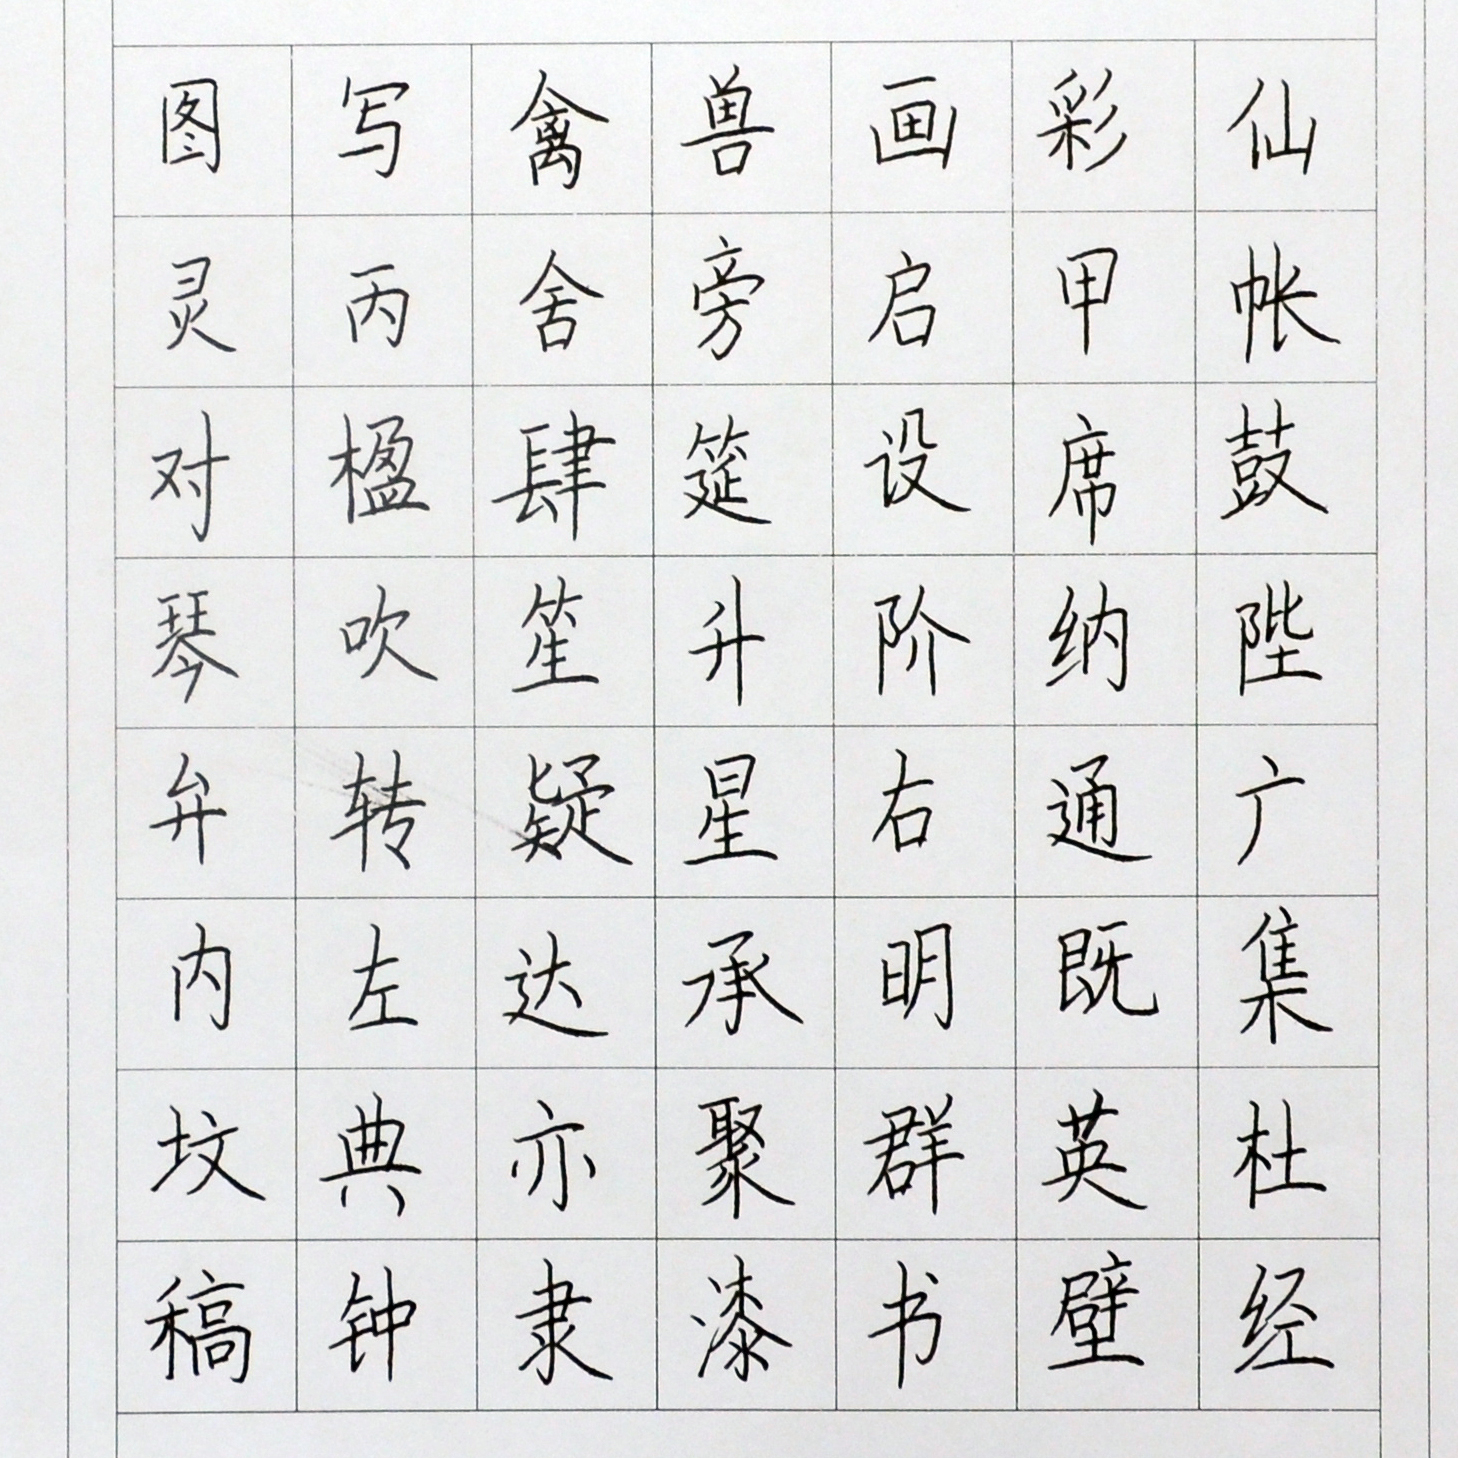 图写禽兽画彩仙
灵丙舍旁启甲帐
对楹肆筵设席鼓
琴吹笙升阶纳陛
弁转疑星右通广
内左达承明既集
坟典亦聚群英杜
稿钟隶漆书壁经